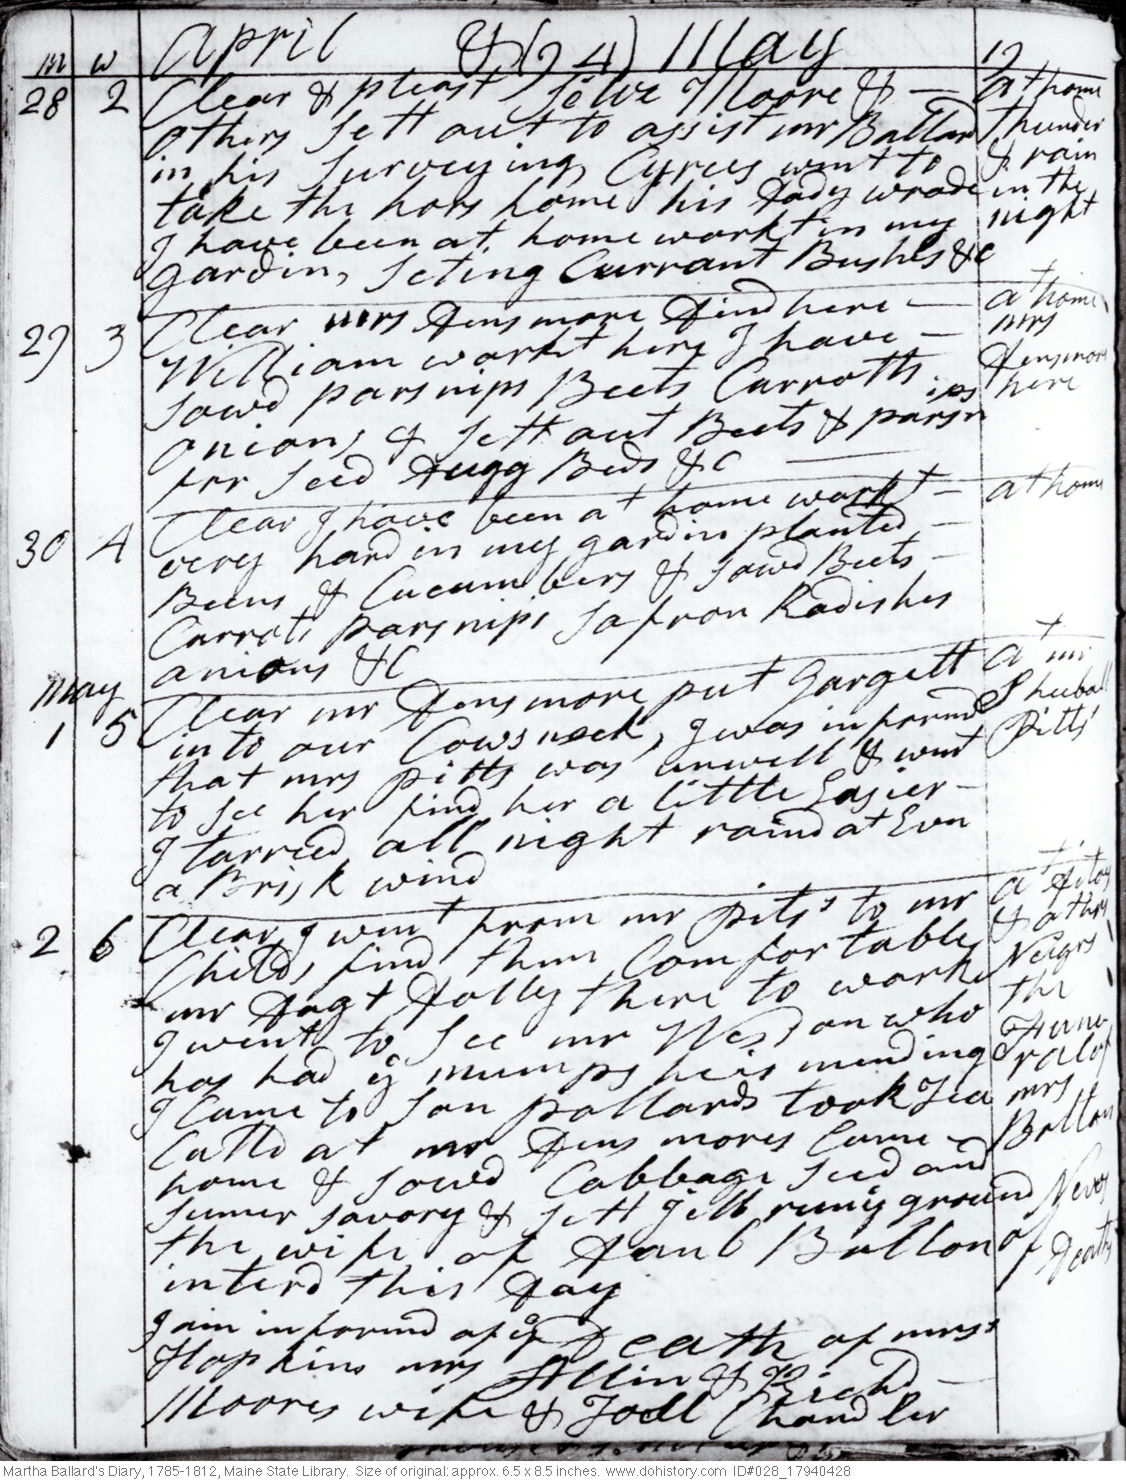 April & (24) May 17
m w
28 2 Clear & pleast Jesse Moore & — at home
others Sett out to assist mr Ballard thunder
in his Surveying, Cyrus went to & rain
take the hors home his dady wrode in the
I have been at home workt in my night
gardin, Seting Currant Bushes &c
29 3 Clear mrs Densmore dind here — at home
William workt here I have — mrs
Sowd parsnips Beets Carrotts Densmore
onions, & Sett out Beets & parsnips here
for Seed dugg Beds &C
30 4 Clear I have been at home workt — at home
very hard in my gardin planted —
Beens & Cucumbers & Sowd Beets —
Carrots parsnips Safron Radishes
onions &C
May
1 5 Clear mr Densmore put Gargett at mr
into our Cows neck, I was informd Shubal
that mrs pitts was unwell & went Pitts'
to See her find her a little Easier —
I tarried all night raind at Evn
a Brisk wind
2 6 Clear, I went from mr pits's to mr at ditos
Childs, find them Comfortable & other
mr dagt Dolly there to work Neigrs
I went to See mr Wesson who the
has had ye mumps he is mending Funu
I Came to Son pollards took Tea ralof
Calld at mr Densmores Came — mrs
home & Sowd Cabbage Seed and Bolton
Sumer Savory & Sett Gill runing ground News
the wife of Danl Bolton of
interd this Day Deaths
I am informd of ye Death of mrs
Hopkins mrs Allin & Richd —
Moores wife & Joell Chandler
Martha Ballard's Diary, 1785-1812, Maine State Library. Size of original: approx. 6.5 x 8.5 inches. www.dohistory.com ID#028_17940428